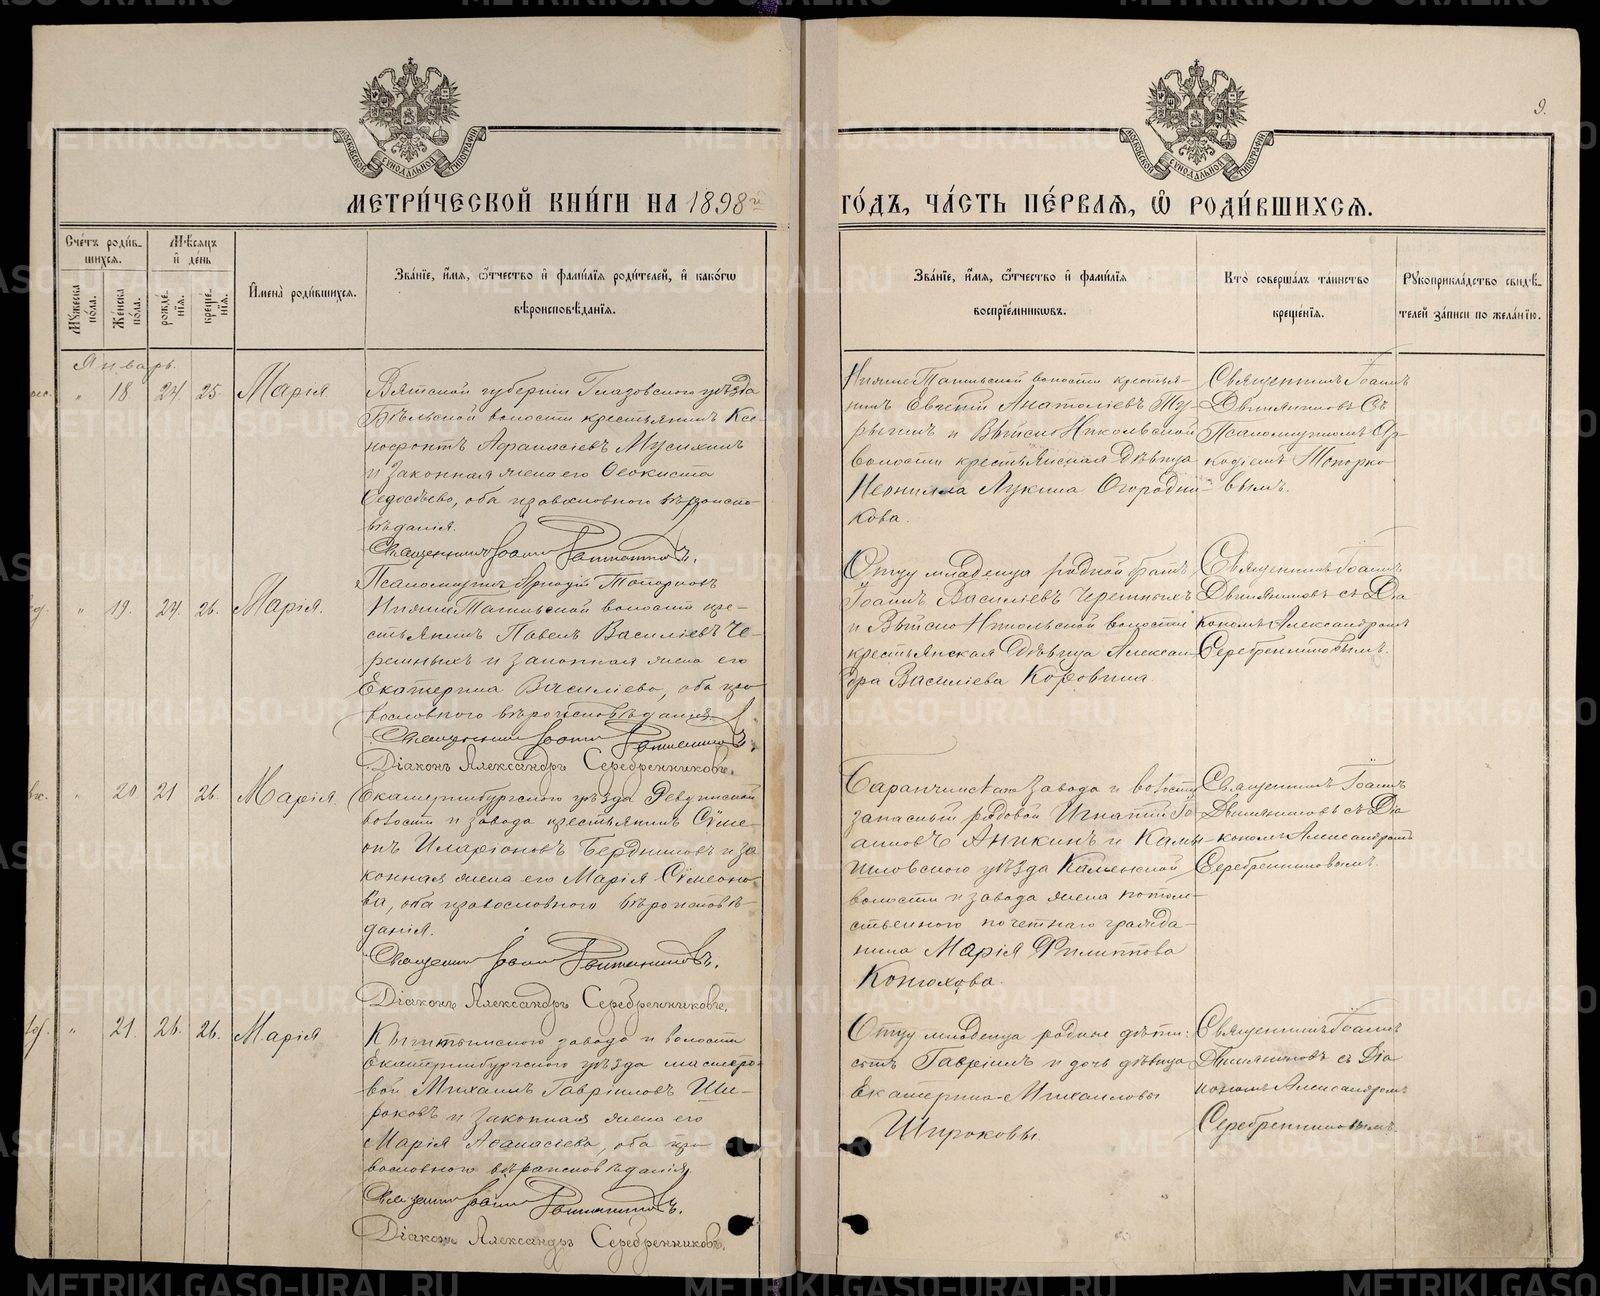 МЕТРИ́ЧЕСКОЙ КНИ́ГИ НА 1898й ГО́ДЪ, ЧА́СТЬ ПЕ́РВАѦ, Ѽ РОДИ́ВШИХСѦ.
9.
МОСКОВСКОЙ СѴНОДАЛЬНОЙ ТИПОГРАФІИ
МОСКОВСКОЙ СѴНОДАЛЬНОЙ ТИПОГРАФІИ
Сче́тъ роди́вшихсѧ.
Мꙋ́жеска по́ла.
Же́нска по́ла.
Мѣ́сѧцъ и҆ де́нь
рожде́нїѧ.
креще́нїѧ.
И҆мена̀ роди́вшихсѧ.
Зва́нїе, и҆́мѧ, ѻ҆́тчество и҆ фами́лїѧ роди́телей, и҆ како́гѡ
вѣроисповѣ́данїѧ.
Зва́нїе, и҆́мѧ, ѻ҆́тчество и҆ фами́лїѧ
воспрїе́мниковъ.
Кто̀ соверша́лъ та́инство
креще́нїѧ.
Рꙋкоприкла́дство свидѣ́телей за́писи по жела́нїю.
Январь.
18 24 25 Марія
Вятской губерніи Глазовского уѣзда
Бѣльской волости крестьянинъ Ксенофонтъ Афанасіевъ Мусихинъ
и законная жена его Ѳеоктиста
Ѳедосѣева, оба православного вѣроисповѣданія.
Священникъ Іоаннъ
Псаломщикъ Аркадій Топорковъ
Нижне Тагильской волости крестьянинъ Евгеній Анатоліевъ
и Вѣйско Никольской
волости крестьянская дѣвица
Неонилла Лукина Огородникова.
Священникъ Іоаннъ
съ
Псаломщикомъ Аркадіемъ Топорковымъ.
19. 24. 26. Марія.
Нижне Тагильской волости крестьянинъ Павелъ Василіевъ Черемныхъ и законная жена его
Екатерина Василіева, оба православного вѣроисповѣданія
Священникъ Іоаннъ
Діаконъ Александръ Серебренниковъ.
Отцу младенца родной братъ
Іоаннъ Василіевъ Черемныхъ
и Вѣйско Никольской волости
крестьянская дѣвица Александра Василіева Коровина.
Священникъ Іоаннъ
съ Діакономъ Александромъ
Серебренниковымъ.
20 21 26. Марія.
Екатеринбургского уѣзда Ревдинской
волости и завода крестьянинъ Сѵмеонъ Иларіоновъ Бердниковъ и законная жена его Марія Сѵмеонова, оба православного вѣроисповѣданія.
Священникъ Іоаннъ
Діаконъ Александръ Серебренниковъ.
Баранчинскаго завода и волости
запасный рядовой Игнатій Іоанновъ Аникинъ и Камышловского уѣзда Каменской
волости и завода жена потомственного почетнаго гражданина Марія Филиппова
Конюхова.
Священникъ Іоаннъ
съ Діакономъ Александромъ
Серебренниковымъ.
21. 26. 26. Марія
Кыштымского завода и волости
Екатеринбургского уѣзда мастеровой Михаилъ Гавріиловъ Широковъ и законная жена его
Марія Аѳанасіева, оба православного вѣроисповѣданія
Священникъ Іоаннъ
Діаконъ Александръ Серебренниковъ.
Отцу младенца родные дѣти:
сынъ Гавріилъ и дочь дѣвица
Екатерина Михаиловы
Широковы.
Священникъ Іоаннъ
съ Діакономъ Александромъ
Серебренниковымъ.
METRIKI.GASO-URAL.RU